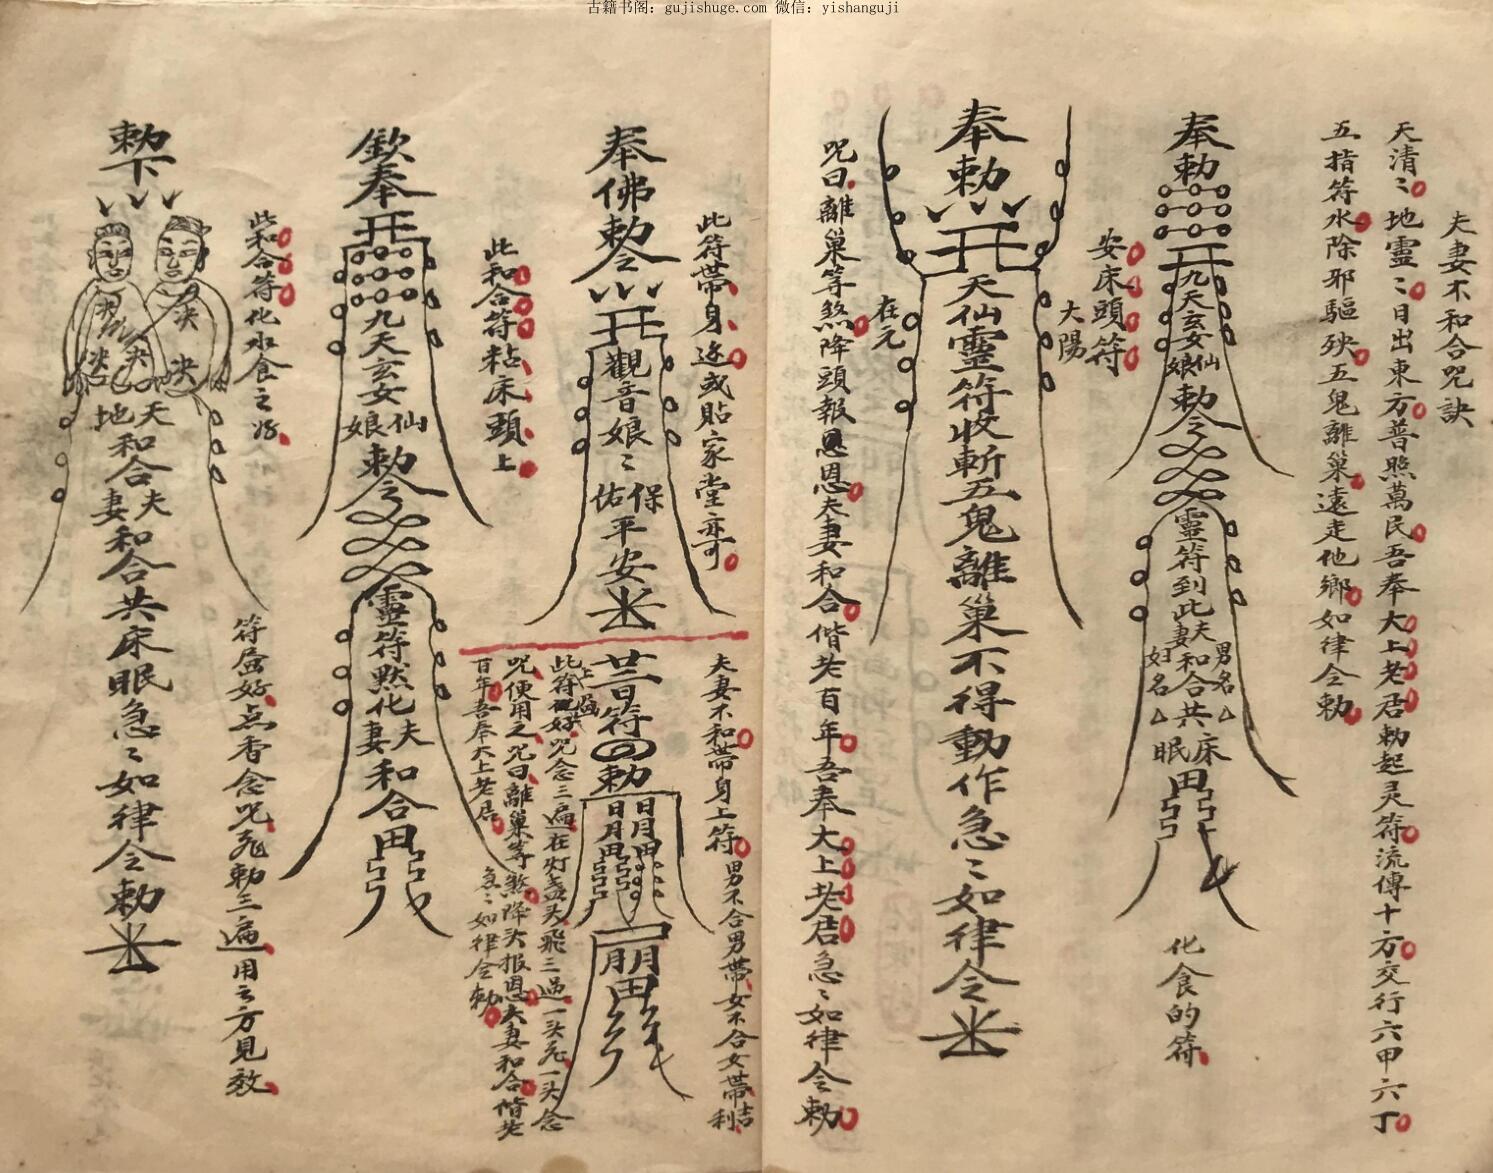 古籍书阁：gujishuge.com 微信：yishanguji
夫妻不和合咒訣
天清〻地靈〻日出東方普照萬民吾奉大上老君勅起灵符流傳十方交行六甲六丁
五指符水除邪驅殃五鬼離巢遠走他鄉如律令勅
奉勅
九天玄女仙娘勅令
靈符到此夫妻和合共床眠
男名厶
妇名厶
化食的符
安床頭符
大陽
奉勅
天仙靈符收斬五鬼離巢不得動作急〻如律令
在元
咒曰離巢等煞降頭報恩恩夫妻和合偕老百年吾奉大上老君急〻如律令勅
此符帶身边或貼家堂亦可
奉佛勅令
觀音娘〻保佑平安
此和合符粘床頭上
夫妻不和帶身上符男不合男帶女不合女帶吉利
符
勅
咒念三遍在灯盏头飛三過一头飛一头念
咒便用之咒曰離巢等煞降头报恩夫妻和合偕老
百年吾奉大上老君急〻如律令勅
欽奉
九天玄女仙娘勅令
靈符默化夫妻和合
此和合符化水食之
符 好点香念咒飛勅三遍用之方見效
勅下
天地和合夫妻和合共床眠急〻如律令勅